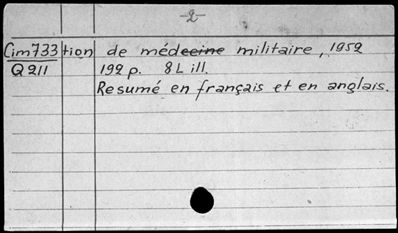 -2-
Cim733 tion de médecine militaire, 1952
Q211 192 p. 8 L ill.
Resumé en français et en anglais.